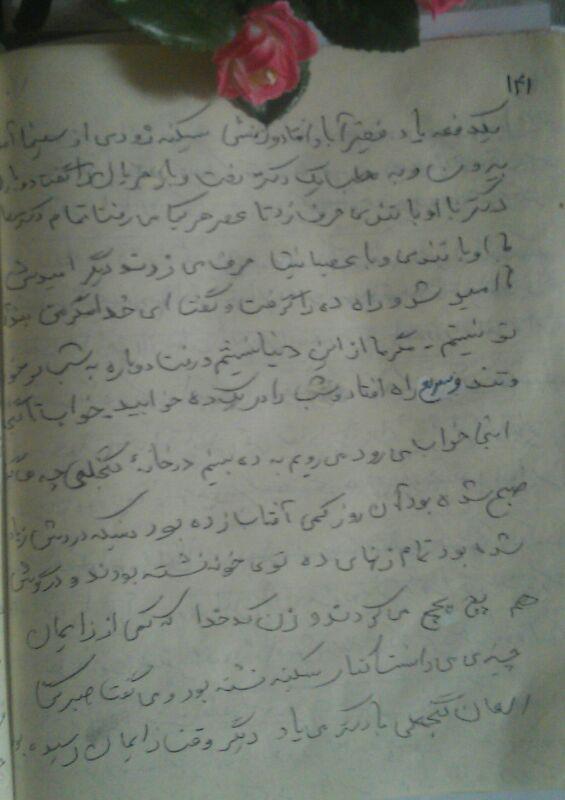 ۱۴۱
یکدفعه یاد فقیرآباد افتاد ولنش سکینه زودی از سینما
بیرون و به مطب یک دکتر رفت و باز هر بال را گفت دوبا
دکتر با او با تندی حرف زد تا عصر هر یکجا می رفت تمام دکتر
با او با تندی و با عصبانیت حرف می زدند دیگر امیدش
نا امید شد و راه ده را گرفت و گفت ای خدا مگر من بنده
تو نیستم - مگر ما از این دنیا نیستیم در نت دوباره به شب بر خو
و تند و سریع راه افتاد و شب را در یک ده خوابید خواب تا
اینجا خواب می رود می رویم به ده ببینیم در خانهٔ گنجعلی چه
صبح شده بود آن روز کمی آفتاب زده بود سکینه دردش زیاد
شده بود تمام زنهای ده توی خونه نشسته بودند و در گوش
هم پچ پچ می کردند و زن کدخدا که کمی از زایمان
چیزی می دانست کنار سکینه نشسته بود و می گفت صبر کن
الهان گنجعلی با دکتر می یاد دیگر وقت زایمان رسیده بو